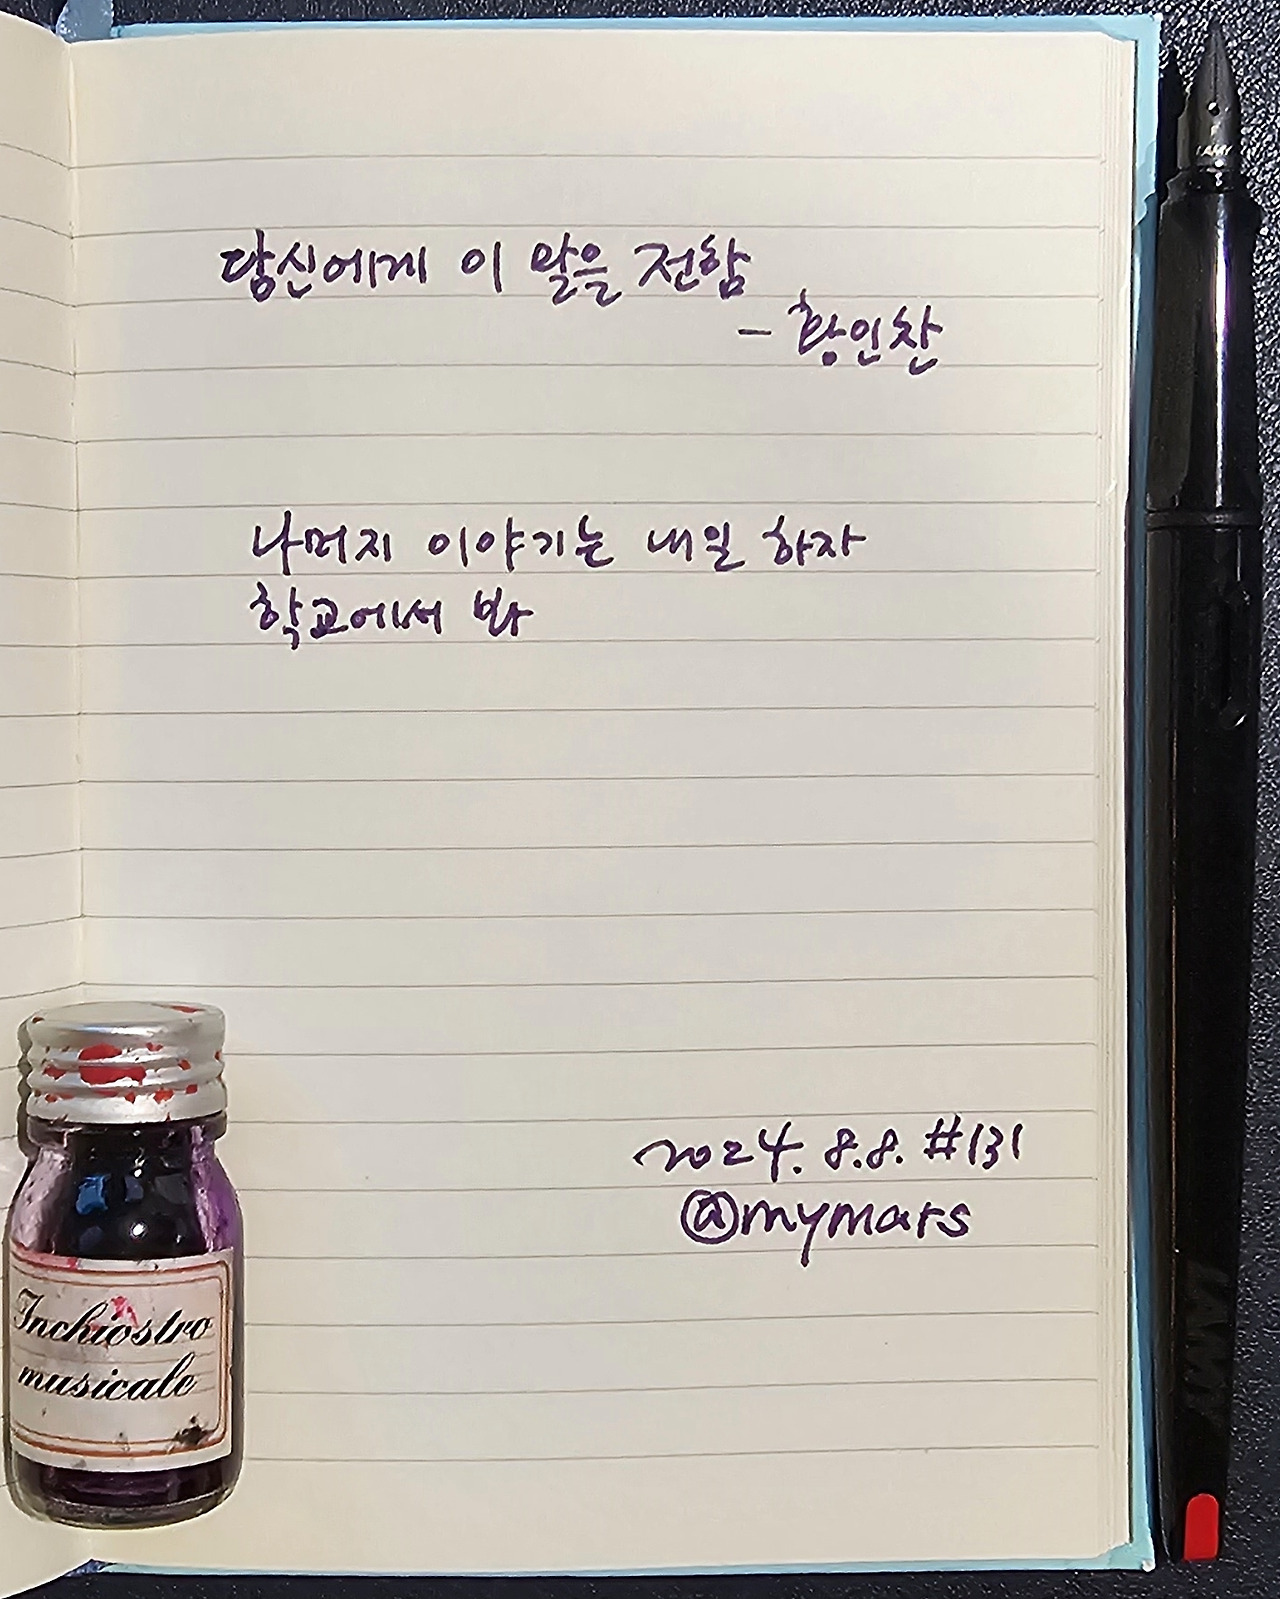 당신에게 이 말을 전함
- 황인찬
나머지 이야기는 내일 하자
학교에서 봐
2024. 8.8. #131
@mymars
Inchiostro
musicale
LAMY
LAMY